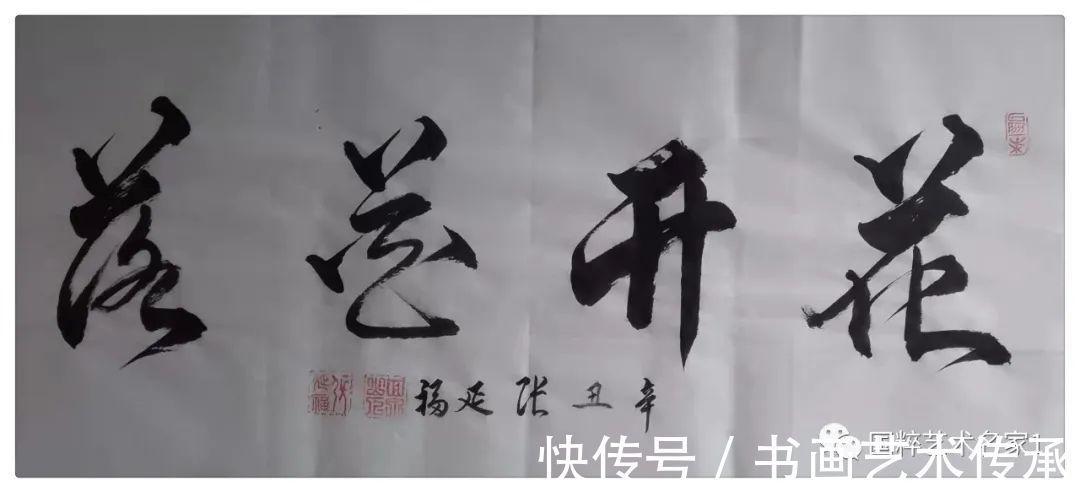 花开花落
辛丑张延福
国粹艺术名家1
快传号 / 书画艺术传承